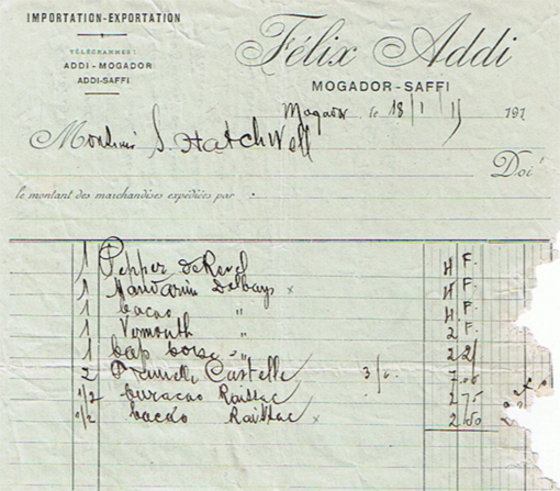 IMPORTATION-EXPORTATION
Félix Addi
TÉLÉGRAMMES:
ADDI-MOGADOR
ADDI-SAFFI
MOGADOR-SAFFI
Mogador, le 18/1/15 191
Monsieur S. Hatchwell
Doit
le montant des marchandises expédiées par
1 Pepper de Revel 4 F.
1 Mandarin Delbays x 4 F.
1 Cacao " 4 F.
1 Vermouth " 2 F.
1 2 2
2 Prunelle Castelle 3/6. 7.00
1/2 Curacao Raissac 2 75
1/2 Cacao Raissac x 2 50